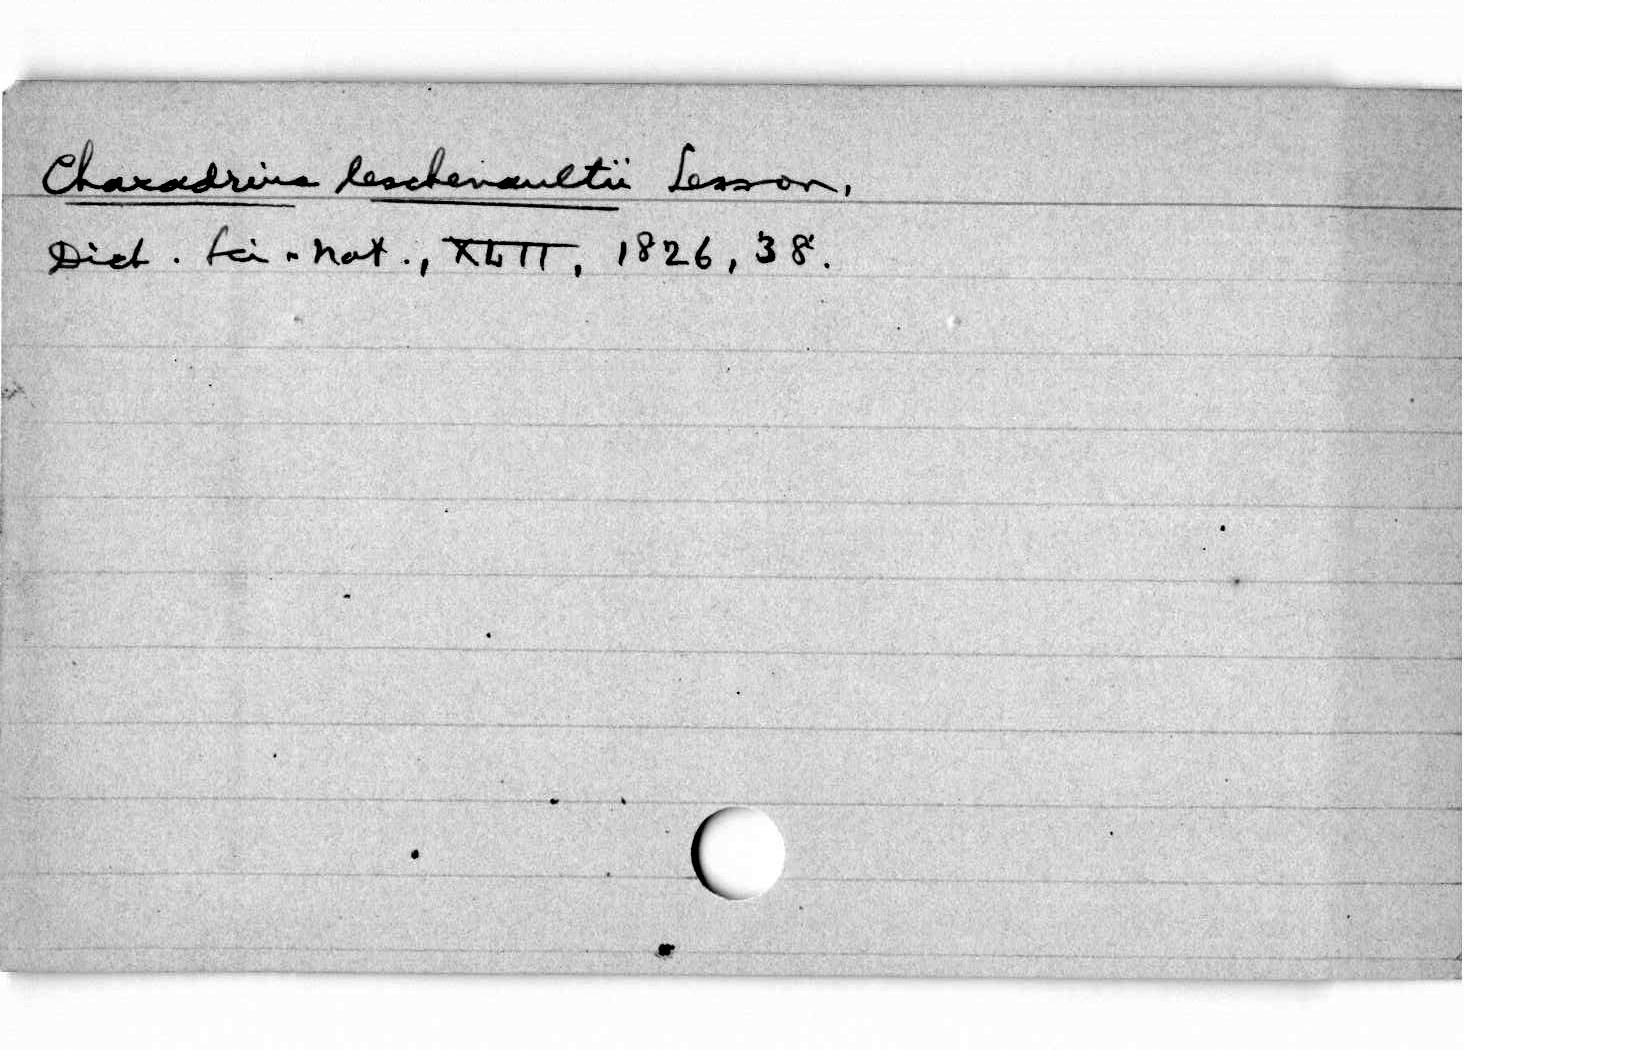 Charadrius leschenaultii Lesson,
Dict. Sci. Nat., XLII, 1826, 38.